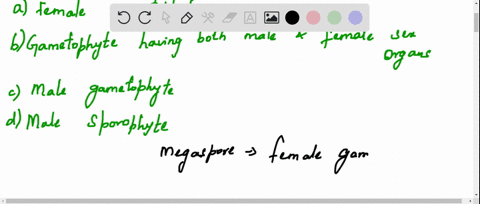 a) female
b) Gametophyte having both male & female sex
organs
c) Male gametophyte
d) Male Sporophyte
megaspore → female gam